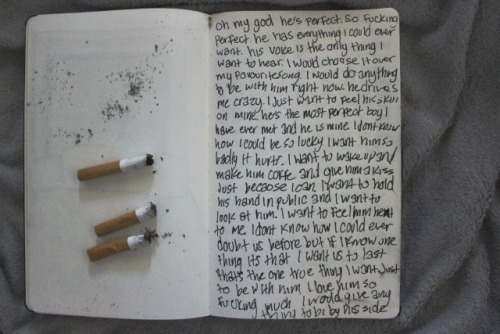 oh my god he's perfect. so fucking
perfect. he has everything I could ever
want. his voice is the only thing I
want to hear. I would choose it over
my favourite song. I would do anything
to be with him right now. he drives
me crazy. I just want to feel his skin
on mine. he's the most perfect boy I
have ever met and he is mine I dont know
how I could be so lucky I want him so
badly it hurts. I want to wake up and
make him coffe and give him a kiss
Just because I can I want to hold
his hand in public and I want to
look at him. I want to feel him next
to me I dont know how I could ever
doubt us before but if I know one
thing its that I want us to last
thats the one true thing I want Just
to be with him I love him so
fucking much I would give any
thing to be by his side